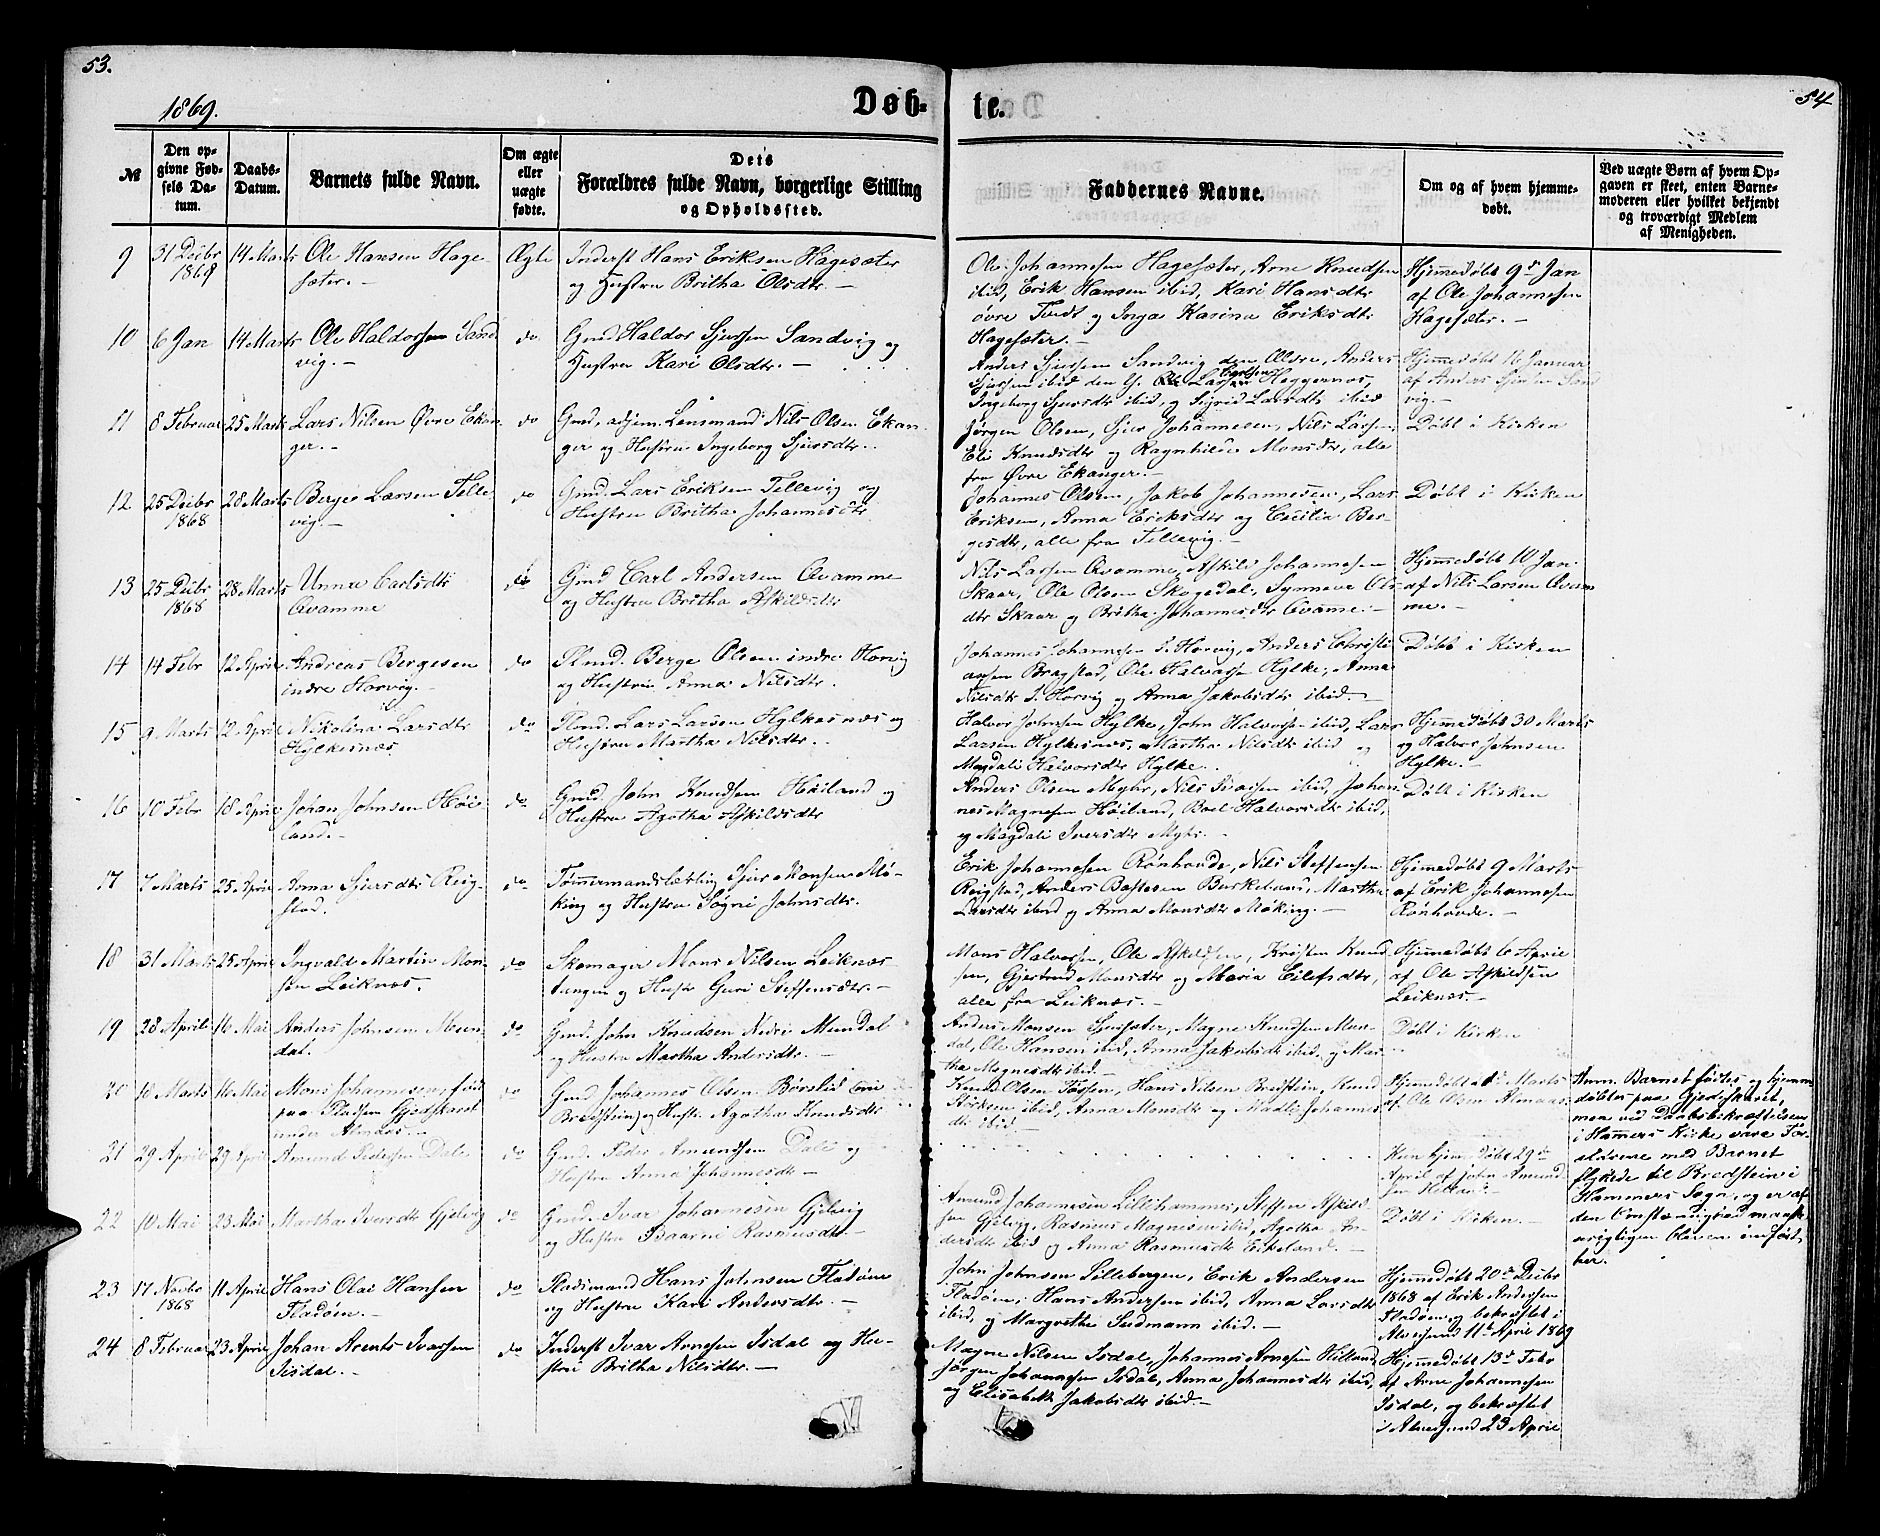 53.
54
1869.
Døb-
te.
№
Den op-
givne Fød-
sels Da-
tum.
Daabs-
Datum.
Barnets fulde Navn.
Om ægte
eller
uægte
fødte.
Dets
Forældres fulde Navn, borgerlige Stilling
og Opholdssted.
Faddernes Navne.
Om og af hvem hjemme-
døbt.
Ved uægte Børn af hvem Op-
gaven er skeet, enten Barne-
moderen eller hvilket bekjendt
og troværdigt Medlem
af Menigheden.
9 31 Decbr 14 Marts Ole Hansen Hage- Ægte Inderst Hans Eriksen Hagesæter
sæter.- og Hustru Britha Olsdtr. -
Ole Johannesen Hagesæter, Arne Knudsen Hjemmedøbt 9de Jan
ibid, Erik Hansen ibid, Kari Hansdtr af Ole Johannesen
øvre Tvedt og Inga Karina Eriksdtr Hagesæter. -
Hagesæter. -
10 6 Jan 14 Marts Ole Haldorsen Sand- do Gmd Haldor Sjursen Sandvig og
vig. - Hustru Kari Olsdtr. -
Anders Sjursen Sandvig den Ældre, Anders Hjemmedøbt 16 Januar
Sjursen ibid den Y. Ole Heggernæs, af Anders Sjursen Sand
Ingeborg Sjursdtr ibid, og Sigrid Larsdtr ibid vig. -
11 8 Februar 25 Marts Lars Nilsen Øvre Ekan- do Gmd, adjun. Lensmand Nils Olsen Ekan-
ger. - ger og Hustru Ingeborg Sjursdtr.
Jørgen Olsen, Sjur Johannesen, Nils Larsen, Døbt i Kirken
Eli Knudsdtr og Ragnhilde Monsdtr, alle
fra Øvre Ekanger. -
12 25 Decbr 28 Marts Berge Larsen Telle- do Gmd. Lars Eriksen Tellevig og
1868 vig. - Hustru Britha Johannesdtr
Johannes Olsen, Jakob Johannesen, Lars Døbt i Kirken
Eriksen, Anna Eriksdtr og Cecilia Ber-
gesdtr, alle fra Tellevig. -
13 25 Decbr 28 Marts Unna Carlsdtr do Gmd Carl Andersen Qvamme
1868 Qvamme og Hustru Britha Askildsdtr
Nils Larsen Qvamme, Askild Johannesen Hjemmedøbt 10 Jan.
Skaar, Ole Olsen Skogedal, Synneve Ols- af Nils Larsen Qvam
dtr Skaar og Britha Johannesdtr Qvamme. - me. -
14 14 Febr 12 April Andreas Bergesen do Berge Olsen indre Horvig
indre Horvig. - og Hustru Anna Nilsdtr.
Johannes Johannesen I. Horvig, Anders Christi Døbt i Kirken
ansen Bragstad, Ole Halvorsen Hylke, Anna
Nilsdtr I. Horvig og Anna Jakobsdtr ibid. -
15 9 Marts 12 April Nikolina Larsdtr do Lars Larsen Hylkesnæs og
Hylkesnæs Hustru Martha Nilsdtr.
Halvor Johnsen Hylke, John Halvorsen ibid, Lars Hjemmedøbt 30 Marts
Larsen Hylkesnæs, Martha Nilsdtr ibid og Halvor Johnsen
Magdali Halvorsdtr Hylke. Hylke. -
16 10 Febr 18 April Johan Johnsen Høi- do Gmd. John Knudsen Høiland og
land. - Hustru Agatha Askildsdtr
Anders Olsen Myhr, Nils Ivarsen ibid, Johan- Døbt i Kirken
nes Magnesen Høiland, Boel Halvorsdtr ibid,
og Magdali Iversdtr Myhr. -
17 7 Marts 25 April Anna Sjursdtr Reig- do Tømmermandslærling Sjur Monsen Mø-
stad. king og Hustru Sogni Johnsdtr.
Erik Johannesen Rønhovde, Nils Steffensen Hjemmedøbt 9 Marts
Reigstad, Anders Martha af Erik Johannesen
Larsdtr ibid og Anna Monsdtr Møking. - Rønhovde. -
18 31 Marts 25 April Ingvald Martin Mon- do Skomager Mons Nilsen Leiknes-
sen Leiknæs. tangen og Hustr Guri Steffensdtr. -
Mons Halvorsen, Ole Askildsen, Kristen Knud- Hjemmedøbt 6 April
sen, Gjertrud Monsdtr og Maria Eilefsdtr, af Ole Askildsen
alle fra Leiknæs. - Leiknæs. -
19 28 April 16 Mai Anders Johnsen Mun- do Gmd. John Knudsen Nedre Mundal
dal. og Hustru Martha Andersdtr. -
Anders Monsen Magne Knudsen Mun- Døbt i Kirken
dal, Ole Hansen ibid, Anna Jakobsdtr ibid, og Mar-
tha Magnesdtr ibid. -
20 10 Marts 16 Mai Mons Johannesen, født do Gmd Johannes Olsen
paa Gjedskaret Bredstein) og Hustr Agatha Knudsdtr
under Almaas. -
Knud Olsen Hans Nilsen Bredstein, Knud Hjemmedøbt Marts
ibid, Anna Monsdtr og Madli Johannes- af Ole Olsen Almaas
dtr ibid. -
Anm. Barnet fødtes og hjemme
døbtes paa Gjedskaret,
men ved Daabsbekræftelsen
i Hammers Kirke vare For-
ældrene med Barnet
flyttede til Bredstein i
Hammers Sogn, og er af
den Omstændighed
bleven indført
her.
21 29 April 29 April Amund Pedersen Dale do Gmd. Peder Amundsen Dale og
Hustru Anna Johannesdtr -
Kun hjemmedøbt 29de
April af John Amund-
sen
22 10 Mai 23 Mai Martha Iversdtr Gjelvig do Gmd. Ivar Johannesen Gjelvig
og Hustru Rasmusdtr. -
Amund Johannesen Lillehammer, Steffen Askild- Døbt i Kirken. -
sen Gjelvig, Rasmus Magnesen ibid, Agatha An-
dersdtr ibid og Anna Rasmusdtr Eikeland. -
23 17 Novbr 11 April Hans Olai Hansen do Pladsmand Hans Johnsen Fladøen
1868 Fladøen. - og Hustru Kari Andersdtr. -
John Johnsen Lillebergen, Erik Andersen Hjemmedøbt 20de Decbr
Fladøen, Hans Andersen ibid, Anna Larsdtr 1868 af Erik Andersen
ibid, og Margrethe ibid. - Fladøen og bekræftet i
Alversund 11te April 1869
24 8 Februar 23 April Johan Arents Ivarsen do Inderst Ivar Arnesen Isdal og Hu-
Isdal. - stru Britha Nilsdtr. -
Magne Nilsen Isdal, Johannes Arnesen Hilland, Hjemmedøbt 13de Febr
Jørgen Johannesen Isdal, Anna Johannesdtr ibid, af Arne Johannesen
og Elisabeth Jakobsdtr ibid. - Isdal, og bekræftet
i Alversund 23 April